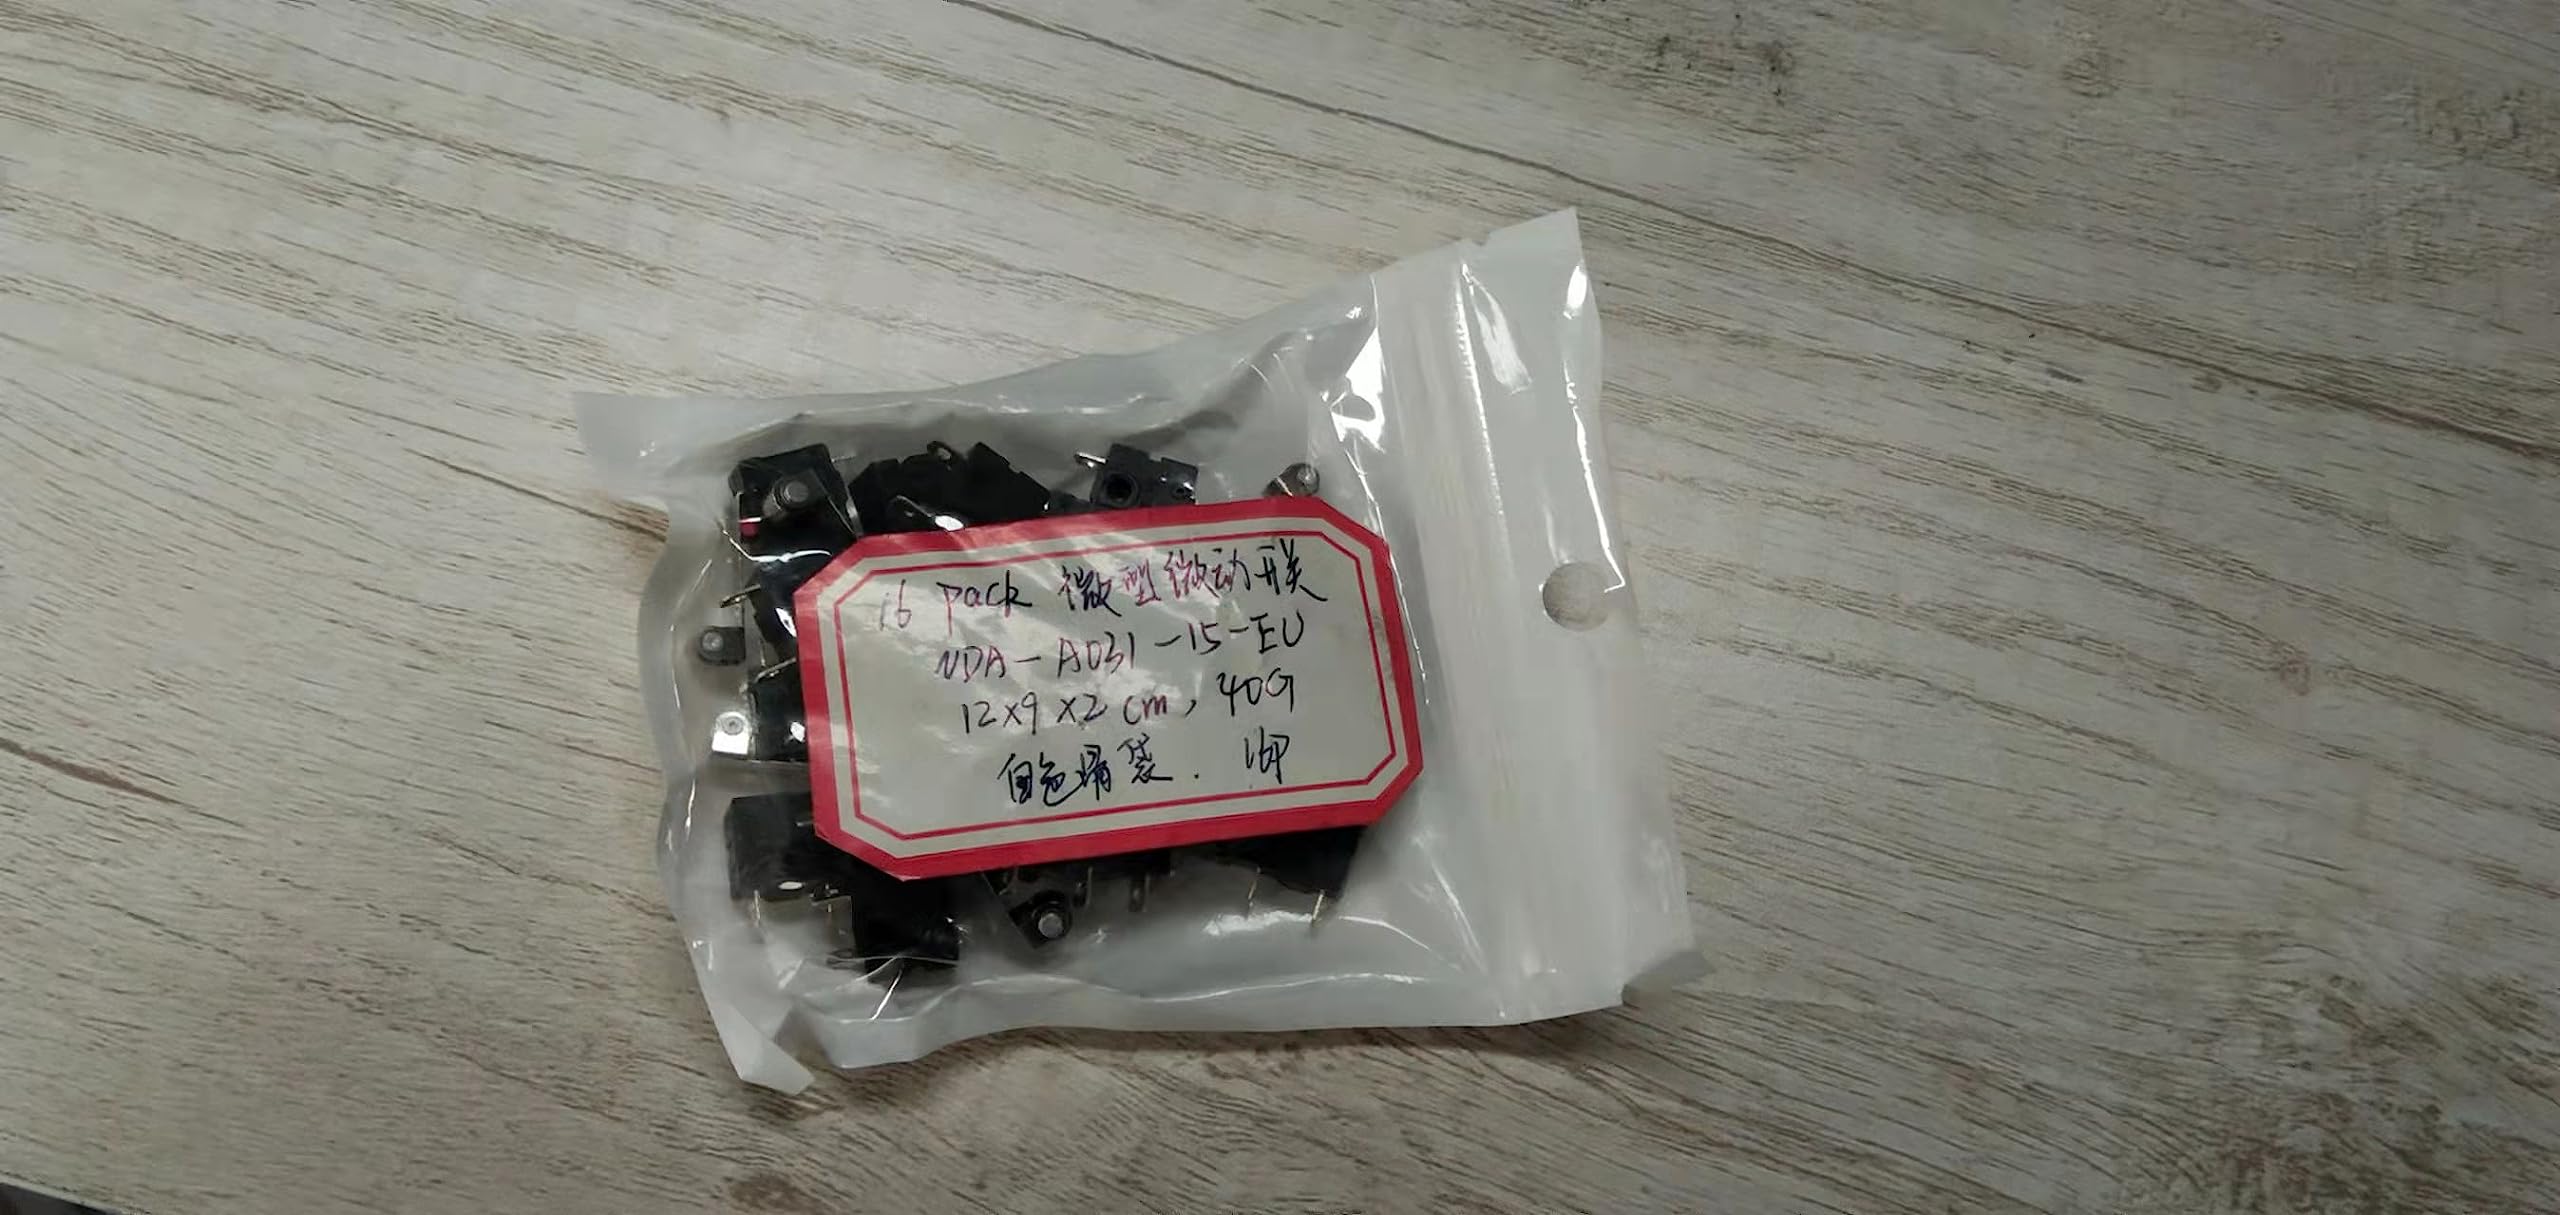 16 pack 微型微动开关
NDA-A031-15-EU
12x9x2cm, 40G
白色骨袋.